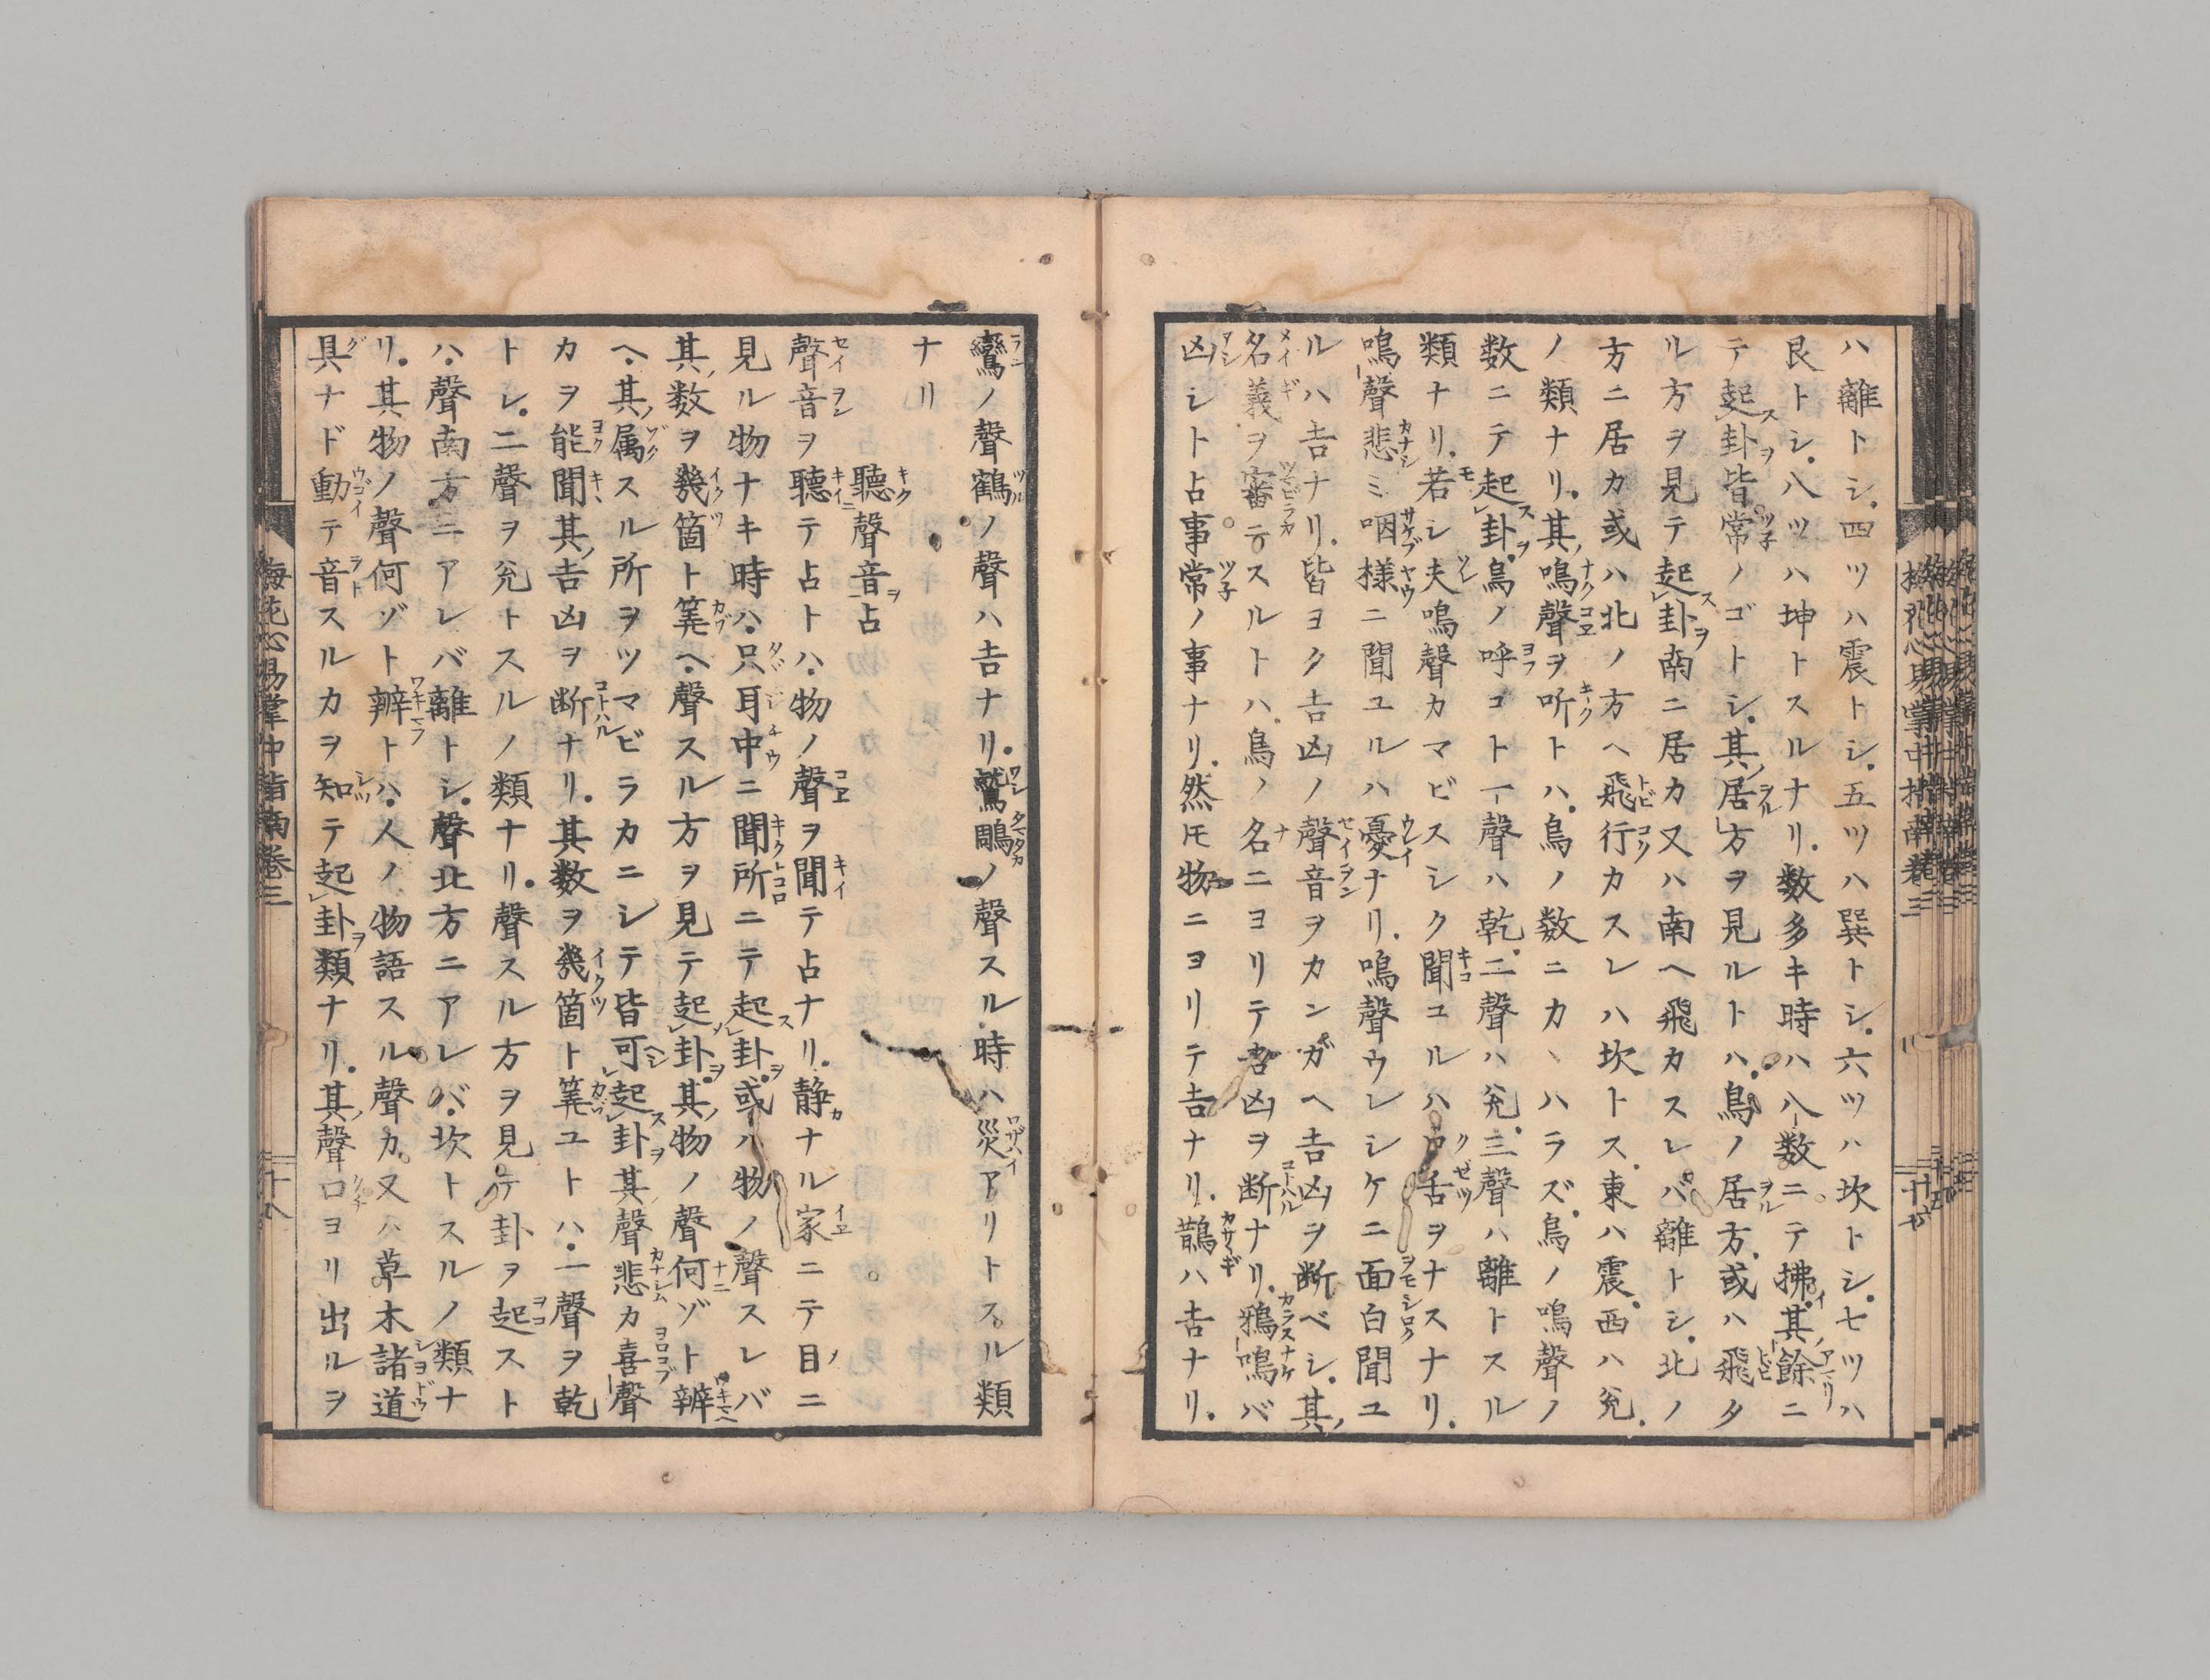 ハ離トシ四ツハ震トシ五ツハ巽トシ六ツハ坎トシ七ツハ
艮トシ八ツハ坤トスルナリ数多キ時ハ八数ニテ拂其餘ニ
テ起卦皆常ノゴトシ其居方ヲ見ルトハ鳥ノ居方或ハ飛タ
ル方ヲ見テ起卦南ニ居カ又ハ南ヘ飛カスレバ離トシ北ノ
方ニ居カ或ハ北ノ方ヘ飛行カスレハ坎トス東ハ震西ハ兊
ノ類ナリ其鳴聲ヲ听トハ鳥ノ数ニカヽハラズ鳥ノ鳴聲ノ
数ニテ起卦鳥ノ呼コト一聲ハ乾二聲ハ兊三聲ハ離トスル
類ナリ若シ夫鳴聲カマビスシク聞コルハ口舌ヲナスナリ
鳴聲悲ミ咽様ニ聞ユルハ憂ナリ鳴聲ウレシケニ面白聞ユ
ルハ吉ナリ皆ヨク吉凶ノ聲音ヲカンガヘ吉凶ヲ断ベシ其
名義ヲ審ニスルトハ鳥ノ名ニヨリテ吉凶ヲ断ナリ鴉鳴バ
凶シト占事常ノ事ナリ然𪜈物ニヨリテ吉ナリ鵲ハ吉ナリ
鸞ノ聲鶴ノ聲ハ吉ナリ鷲鵰ノ聲スル時ハ災アリトスル類
ナリ
聽聲音占
聲音ヲ聽テ占トハ物ノ聲ヲ聞テ占ナリ静ナル家ニテ目ニ
見ル物ナキ時ハ只耳中ニ聞所ニテ起卦或ハ物ノ聲スレバ
其数ヲ幾箇ト筭ヘ聲スル方ヲ見テ起卦其物ノ聲何ゾト辨
ヘ其属スル所ヲツマビラカニシテ皆可起卦其聲悲カ喜聲
カヲ能聞其吉凶ヲ断ナリ其数ヲ幾箇ト筭ユトハ一聲ヲ乾
トシ二聲ヲ兊トスルノ類ナリ聲スル方ヲ見テ卦ヲ起スト
ハ聲南方ニアレバ離トシ聲北方ニアレバ坎トスルノ類ナ
リ其物ノ聲何ゾト辨トハ人ノ物語スル聲カ又ハ草木諸道
具ナド動テ音スルカヲ知テ起卦類ナリ其聲口ヨリ出ルヲ
梅花心易掌中指南巻三
十八